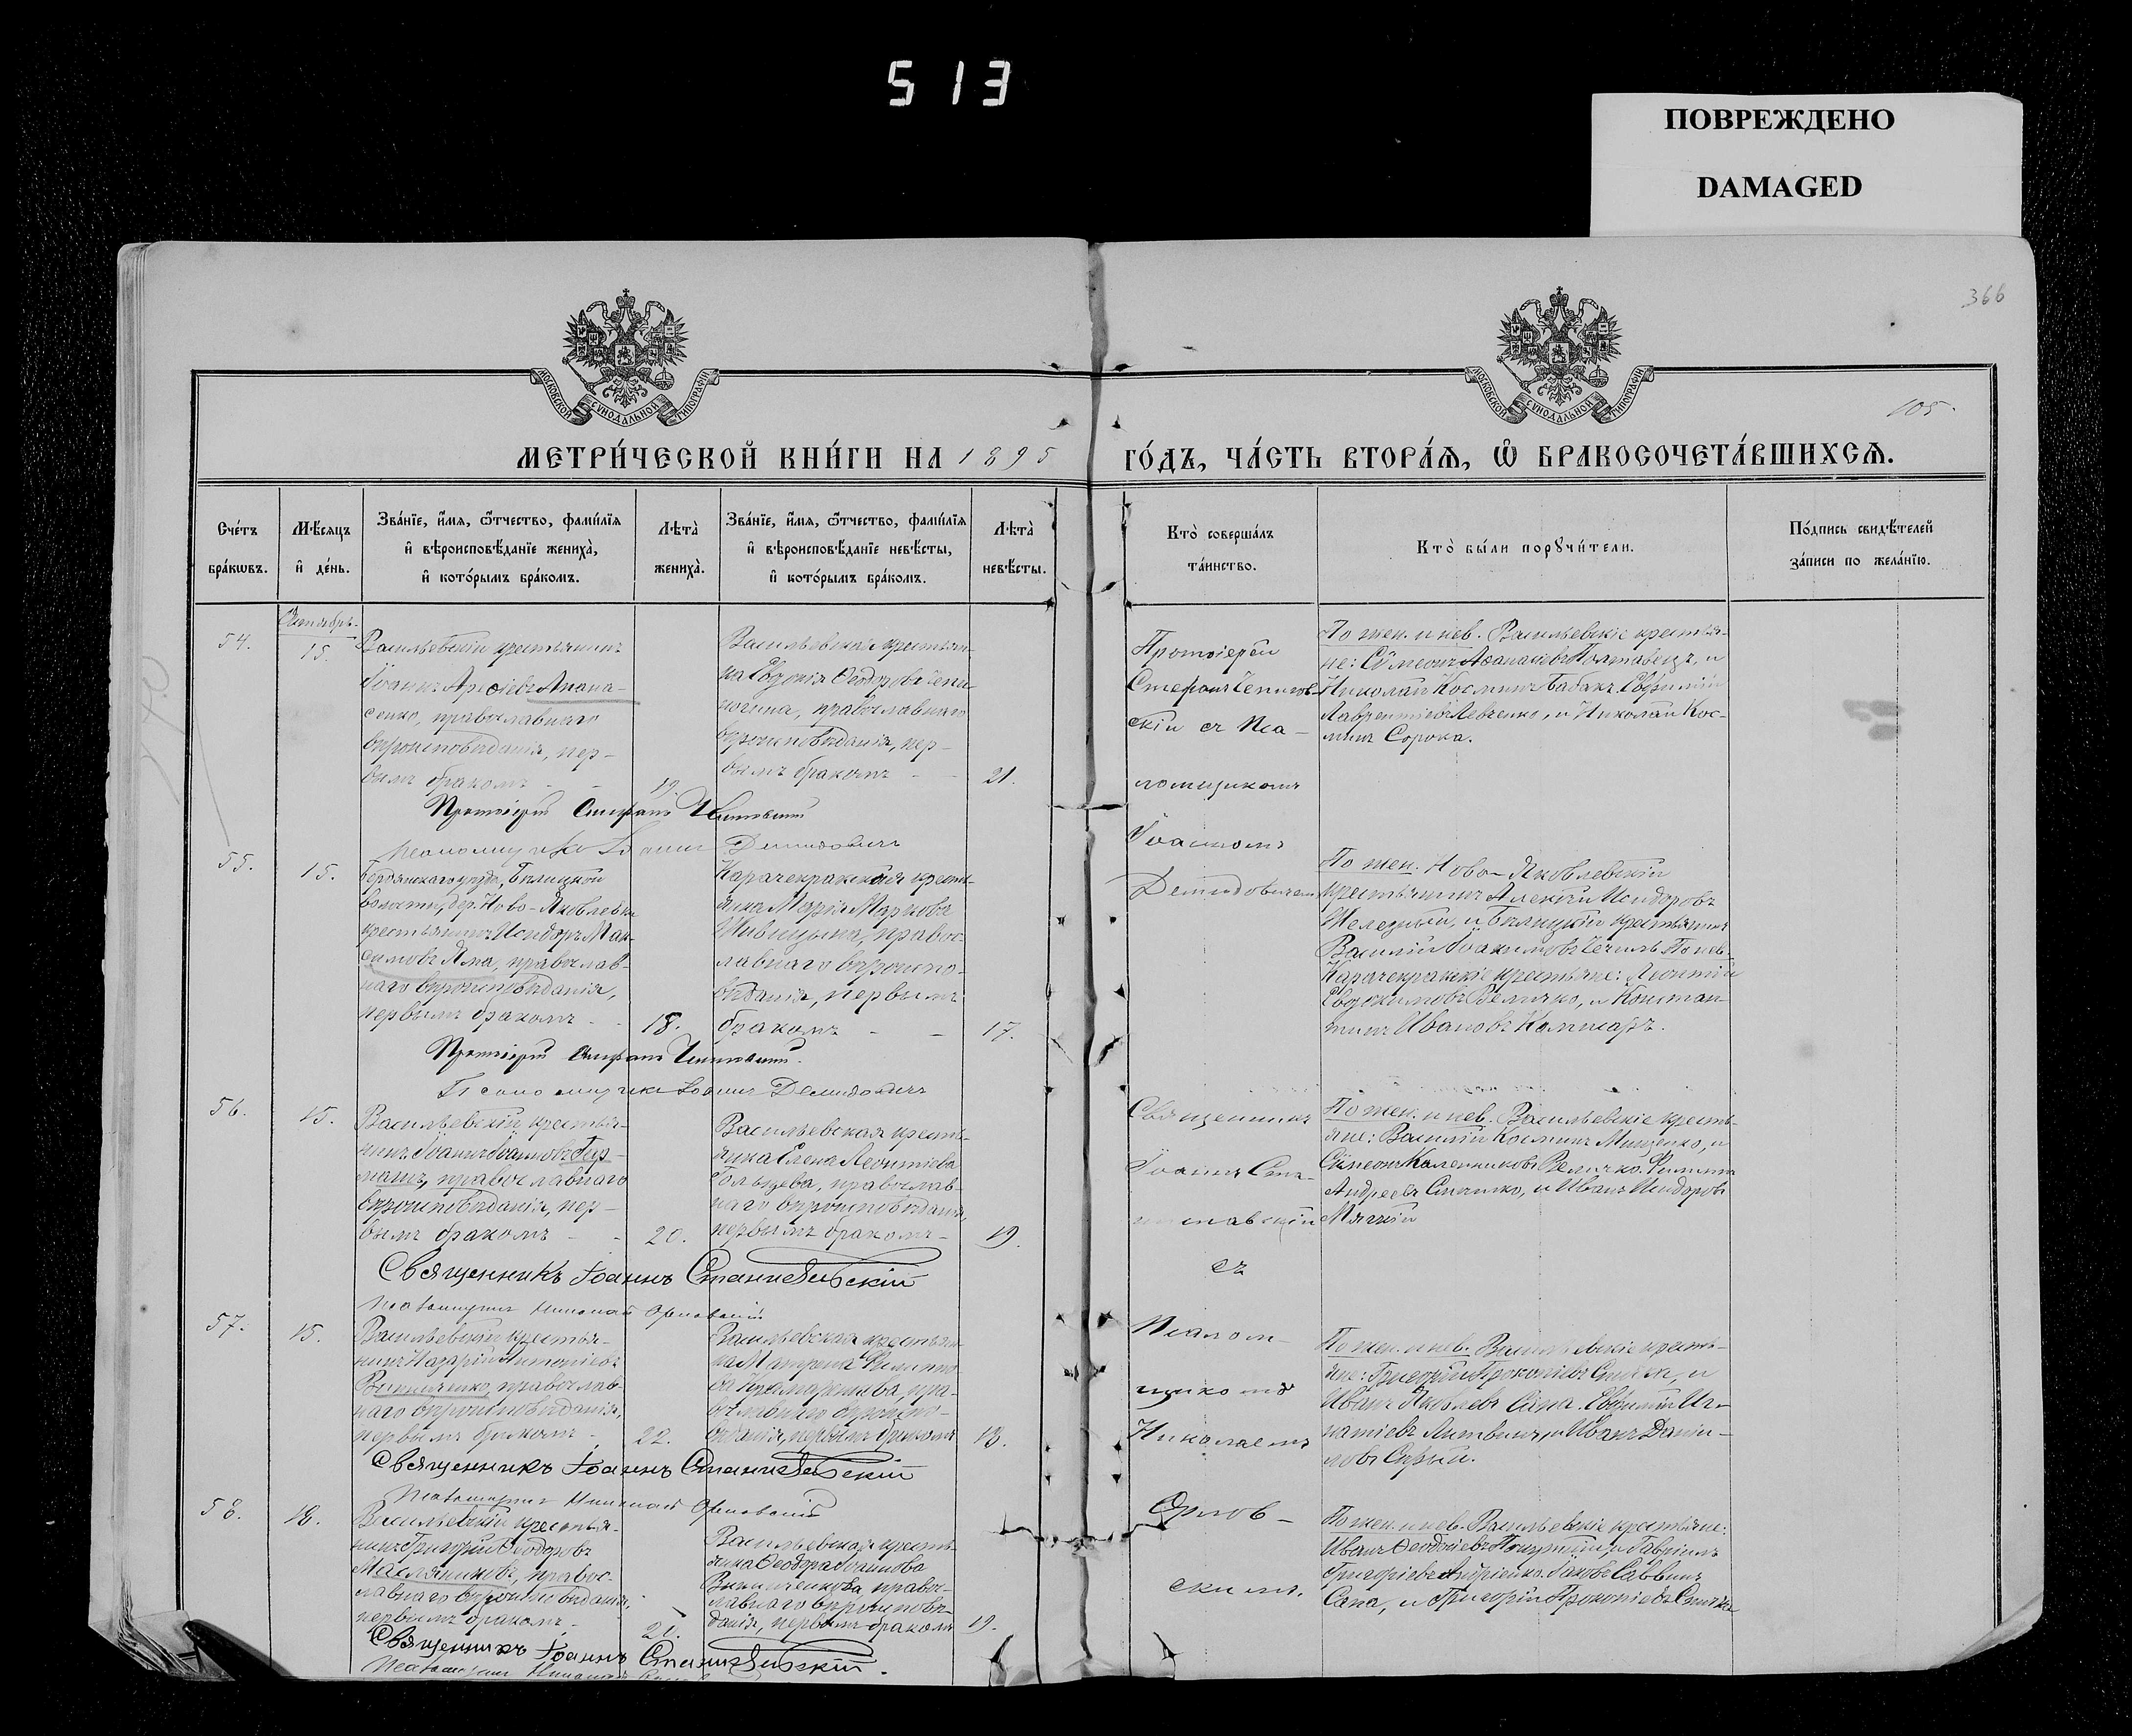 513
ПОВРЕЖДЕНО
DAMAGED
366
МОСКОВСКОЙ СѴНОДАЛЬНОЙ ТИПОГРАФІИ
МОСКОВСКОЙ СѴНОДАЛЬНОЙ ТИПОГРАФІИ
105.
МЕТРИ́ЧЕСКОЙ КНИ́ГИ НА 1895 ГО́ДЪ, ЧА́СТЬ ВТОРА́Ѧ, Ѡ҆ БРАКОСОЧЕТА́ВШИХСѦ.
Сче́тъ бра́кѡвъ.
Мѣ́сяцъ и҆ де́нь.
Зва́нїе, и҆́мя, ѻ҆́тчество, фами́лїя
и҆ вѣроисповѣ́данїе жениха̀,
и҆ кото́рымъ бра́комъ.
Лѣта̀ жениха̀.
Зва́нїе, и҆́мя, ѻ҆́тчество, фами́лїя
и҆ вѣроисповѣ́данїе невѣ́сты,
и҆ кото́рымъ бра́комъ.
Лѣта̀ невѣ́сты.
Кто̀ соверша́лъ
та́инство.
Кто̀ бы́ли порꙋчи́тели.
По́дпись свидѣ́телей
за́писи по жела́нїю.
Октябрь.
54.
15.
Васильевскій крестьянинъ
Іоаннъ Арсѳіевъ Апана-
сенко, православнаго
вѣроисповѣданія, пер-
вымъ бракомъ
19.
Васильевская крестьян-
ка Евдокія Ѳеодорова
православнаго
вѣроисповѣданія, пер-
вымъ бракомъ
21.
Протоіерей
Стефанъ
скій съ Пса-
ломщикомъ
Іоанномъ
Демидовичемъ
По жен. и нев. Васильевскіе крестья-
не: Сѵмеонъ Аѳанасіевъ Полтавецъ, и
Николай Косминъ Бабакъ. Евфимій
Лаврентіевъ Левченко, и Николай Кос-
минъ Сорока.
Протоіерей Стефанъ
Псаломщикъ Іоаннъ Демидовичъ
55.
15.
Бердянскаго уѣзда,
волости, дер. Ново-Яковлевки
крестьянинъ Исидоръ Мак-
симовъ Яма, православ-
наго вѣроисповѣданія,
первымъ бракомъ
18.
Карачекракская крестьян-
ка Марія Маркова
правос-
лавнаго вѣроиспо-
вѣданія, первымъ
бракомъ
17.
По жен. Ново-Яковлевскій
крестьянинъ Алексій Исидоровъ
крестьянинъ
Василій Іоакимовъ По нев.
Карачекракскіе крестьяне: Леонтій
Евдокимовъ Величко, и Констан-
тинъ Ивановъ Комисаръ.
Протоіерей Стефанъ
Псаломщикъ Іоаннъ Демидовичъ
56.
15.
Васильевскій крестья-
нинъ Іоаннъ Іоанновъ Гер-
манъ, православнаго
вѣроисповѣданія, пер-
вымъ бракомъ
20.
Васильевская кресть-
янка Елена Леонтіева
Гольцева, православ-
наго вѣроисповѣданія,
первымъ бракомъ
19.
Священникъ
Іоаннъ Ста-
ниславскій
съ
Псалом-
щикомъ
Николаемъ
Орлов-
скимъ.
По жен. и нев. Васильевскіе кресть-
яне: Василій Косминъ Мищенко, и
Сѵмеонъ Калинниковъ Величко. Филиппъ
Андреевъ и Иванъ Исидоровъ
Мягкій
Священникъ Іоаннъ Станиславскій
Псаломщикъ Николай Орловскій
57.
15.
Васильевскій крестья-
нинъ Назарій Антоніевъ
Винниченко, православ-
наго вѣроисповѣданія,
первымъ бракомъ
22.
Васильевская крестьян-
ка Матрона Филиппо-
ва Крамаренкова, пра-
вославнаго вѣроиспо-
вѣданія, первымъ бракомъ
18.
По жен. и нев. Васильевскіе кресть-
яне: Григорій Прокопіевъ и
Иванъ Яковлевъ Сапа. Евѳимій Иг-
натіевъ Литвинъ, и Иванъ Даніи-
ловъ Сѣрый.
Священникъ Іоаннъ Станиславскій
Псаломщикъ Николай Орловскій
58.
18.
Васильевскій крестья-
нинъ Григорій Ѳеодоровъ
Масляниковъ, правос-
лавнаго вѣроисповѣданія,
первымъ бракомъ
21.
Васильевская кресть-
янка Ѳеодора Іоаннова
Винниченкова, правос-
лавнаго вѣроисповѣ-
данія, первымъ бракомъ
19.
По жен. и нев. Васильевскіе крестьяне:
Иванъ и Гавріилъ
Григоріевъ Андріенко. Іаковъ Саввинъ
Сапа, и Григорій Прокопіевъ
Священникъ Іоаннъ Станиславскій.
Псаломщикъ Николай